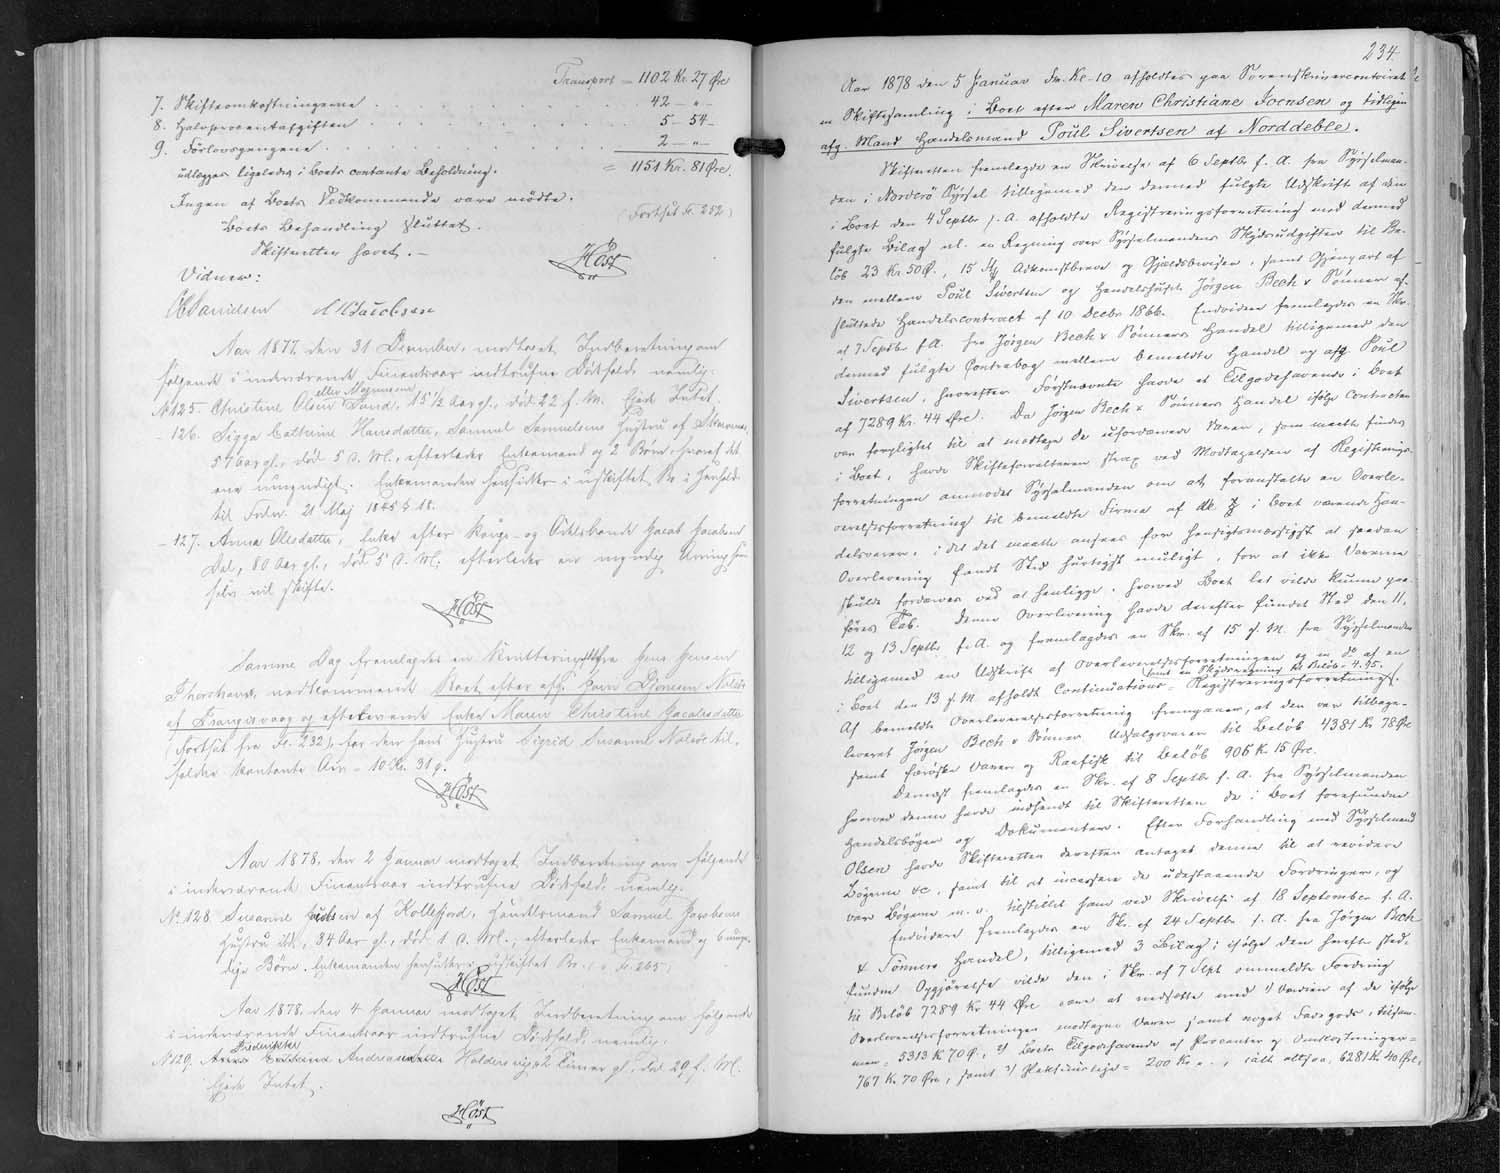 Transport = 1102 Kr. 27 Øre
7. Skifteomkostningerne . . . 42 — „ —
8. Halvprocentafgiften . . . 5 — 54 —
9. Forlovspengene . . . 2 — „ —
udlægges ligeledes i Boets contante Beholdning. = 1151 Kr. 81 Øre.
Ingen af Boets Vedkommende vare mødte.
(Fortsat Fr. 252)
Boets Behandling sluttet.
Skifteretten hævet. —
Høst
Vidner:
Danielsen Jacobsen
Aar 1877, den 31 December, modtoges Indberetning om
følgende i indeværende Finantsaar indtrufne Dødsfald, nemlig:
eller Mogensen
No 125. Christine Olsen Sand, 15 1/2 Aar gl., død 22 f. M. Ejede Intet.
- 126. Sigga Cathrine Hansdatter, Samuel Samuelsens Hustru af
57 Aar gl., død 5 d. M., efterlader Enkemand og 2 Børn, hvoraf det
ene umyndigt. Enkemanden hensidder i uskiftet Bo i Henhold
til Frdn. 21 Maj 1845 § 18.
- 127. Anna Olesdatter, Enke efter Konge- og Odelsbonde Jacob Jacobsen
Dal, 80 Aar gl., død 5 d. M., efterlader en myndig Arving som
selv vil skifte.
Høst
Samme Dag fremlagdes en Kvittering fra Jens Jensen
Thorshavn, vedkommende Boet efter afg. Djonesen Nolsøe
af Trangisvaag og efterlevende Enke Maren Christine Jacobsdatter
(Fortsat fra Fr. 232), for den hans Hustru Sigrid Susanne Nolsøe til-
faldne kontante Arv = 10 Kr. 31 Ø.
Høst
Aar 1878, den 2 Januar modtoges Indberetning om følgende
i indeværende Finantsaar indtrufne Dødsfald, nemlig.
No 128 Susanne af Kollefjord, Handelsmand Samuel Jacobsens
Hustru ibd., 34 Aar gl., død 1 d. M., efterlader Enkemand og 6 umyn-
dige Børn. Enkemanden hensidder i uskiftet Bo. (v. Fr. 265)
Høst
Aar 1878, den 4 Januar modtoges Indberetning om følgende
i indeværende Finantsaar indtrufne Dødsfald, nemlig.
Frederikke
No 129. Andrea 2 Timer gl., død 29 f. M.
Ejede Intet.
Høst
234.
Aar 1878 den 5 Januar Fm. Kl. 10 afholdtes paa Sorenskrivercontoiret
en Skiftesamling i Boet efter Maren Christiane Joensen og tidligere
afg. Mand Handelsmand Poul Sivertsen af Norddeble.
Skifteretten fremlagde en Skrivelse af 6 Septbr f. A. fra Sysselman-
den i Norderø Syssel tilligemed den dermed fulgte Udskrift af den
i Boet den 4 Septbr f. A. afholdte Registreringsforretning med dermed
fulgte Bilag nl. en Regning over Sysselmandens Skydsudgifter til Be-
løb 23 Kr. 50 Ø., 15 Adkomstbreve og Gjældsbeviser, samt Gjenpart af
den mellem Poul Sivertsen og Handelshuset Jørgen Bech & Sønner af-
sluttede Handelscontract af 10 Decbr 1866. Endvidere fremlagdes en Skr.
af 7 Septbr f. A. fra Jørgen Bech & Sønners Handel tilligemed den
dermed fulgte Contrabog mellem bemeldte Handel og afg. Poul
Sivertsen, hvorefter Førstnævnte havde et Tilgodehavende i Boet
af 7289 Kr. 44 Øre. Da Jørgen Bech & Sønners Handel ifølge Contracten
var forpligtet til at modtage de ufordærvede Varer, som maatte findes
i Boet, havde Skifteforvalteren strax ved Modtagelsen af Registrerings-
forretningen anmodet Sysselmanden om at foranstalte en Overle-
verelsesforretning til bemeldte Firma af de i Boet værende Han-
delsvarer, idet det maatte ansees for hensigtsmæssigst at saadan
Overlevering fandt Sted hurtigst muligt, for at ikke Varerne
skulde fordærves ved at henligge, hvorved Boet let vilde kunne paa-
føres Tab. Denne Overlevering havde derefter fundet Sted den 11,
12 og 13 Septbr f. A. og fremlagdes en Skr. af 15 s. M. fra Sysselmanden
tilligemed en Udskrift af Overleverelsesforretningen og en do af en
samt en Skydsregning til Beløb = 4.95.
i Boet den 13 s. M. afholdt Continuations-Registreringsforretning.
Af bemeldte Overleverelsesforretning fremgaaer, at der var tilbage-
leveret Jørgen Bech & Sønner Udsalgsvarer til Beløb 4381 Kr. 78 Øre
samt færøske Varer og Raafisk til Beløb 906 K. 15 Øre.
Dernæst fremlagdes en Skr. af 8 Septbr f. A. fra Sysselmanden
hvorved denne havde indsendt til Skifteretten de i Boet forefundne
Handelsbøger og Dokumenter. Efter Forhandling med Sysselmand
Olsen havde Skifteretten derefter antaget denne til at revidere
Bøgerne &c, samt til at incassere de udestaaende Fordringer, og
var Bøgerne m. v. tilstillet ham ved Skrivelse af 18 September f. A.
Endvidere fremlagdes en Skr. af 24 Septbr f. A. fra Jørgen Bech
& Sønners Handel, tilligemed 3 Bilag; ifølge den herefter sted-
fundne Opgjørelse vilde den i Skr. af 7 Sept ommeldte Fordring
til Beløb 7289 Kr 44 Øre være at nedsætte med 1) Værdien af de ifølge
Overleverelsesforretningen modtagne Varer samt noget Faregods, tilsam-
men = 5313 K 70 Ø, 2) Boets Tilgodehavende af Procenter og Omkostninger =
767 Kr. 70 Øre, samt 3) = 200 Kr „ , ialt altsaa, 6281 K. 40 Øre,